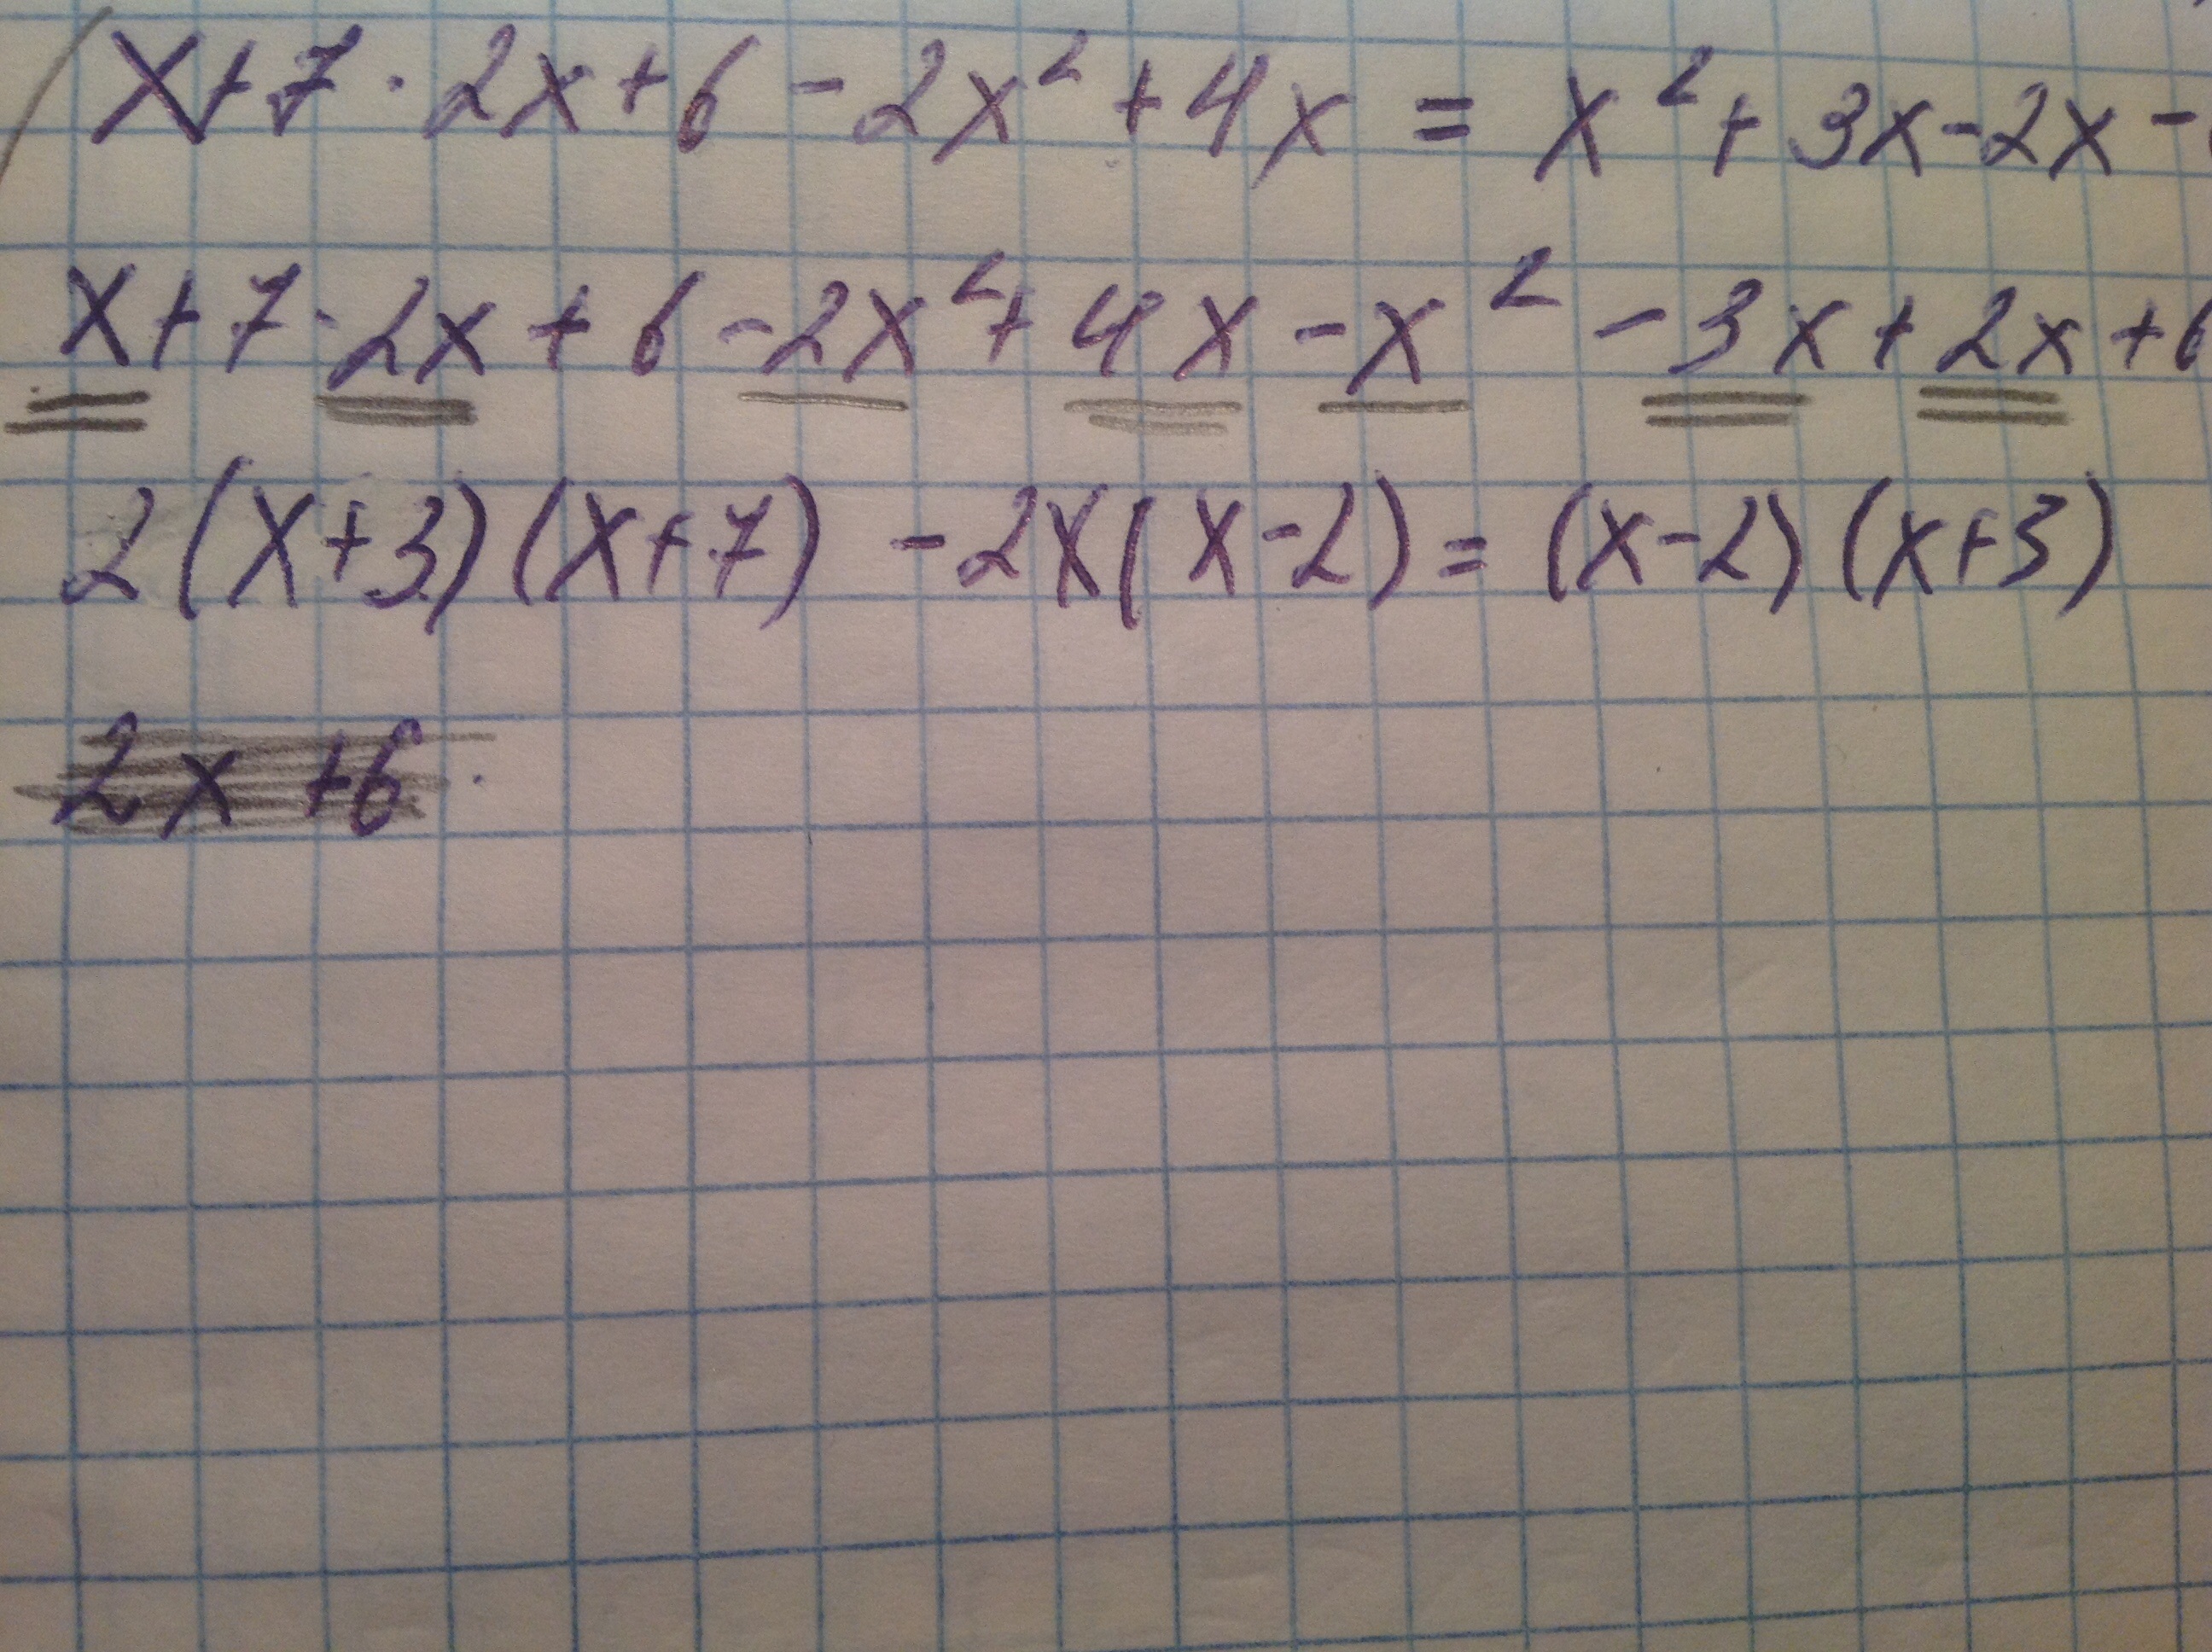 x+7·2x+6-2x²+4x=x²+3x-2x-
x+7·2x+6-2x²+4x-x²-3x+2x+6
2(x+3)(x+7)-2x(x-2)=(x-2)(x+3)
2x+6·